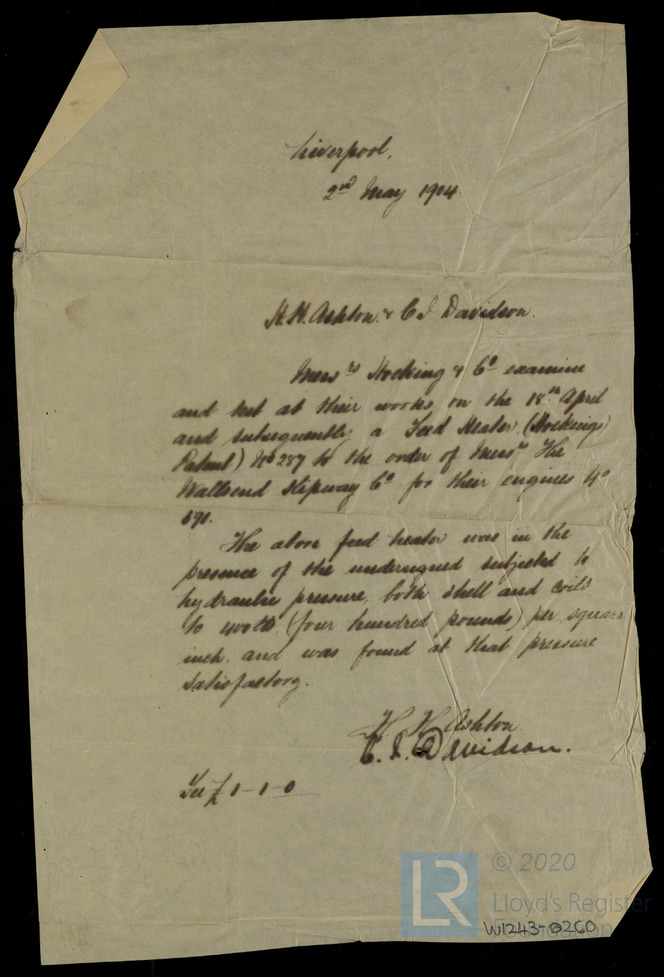 Liverpool,
2nd May 1904
H. H. Ashton & C J Davidson.
Messrs Hocking & Co examine
and test at their works, on the 18th April
and subsequently a Feed Heater (Hockings
Patent) No 287 to the order of Messrs The
Wallsend Slipway Co for their engines No
691.
The above feed heater was in the
presence of the undersigned subjected to
hydraulic pressure, both shell and coils
to 400 lbs (four hundred pounds) per square
inch. and was found at that pressure
satisfactory.
H H Ashton
C. J. Davidson.
Fee £ 1-1-0
LR
© 2020
Lloyd's Register
Foundation
W1243-0260